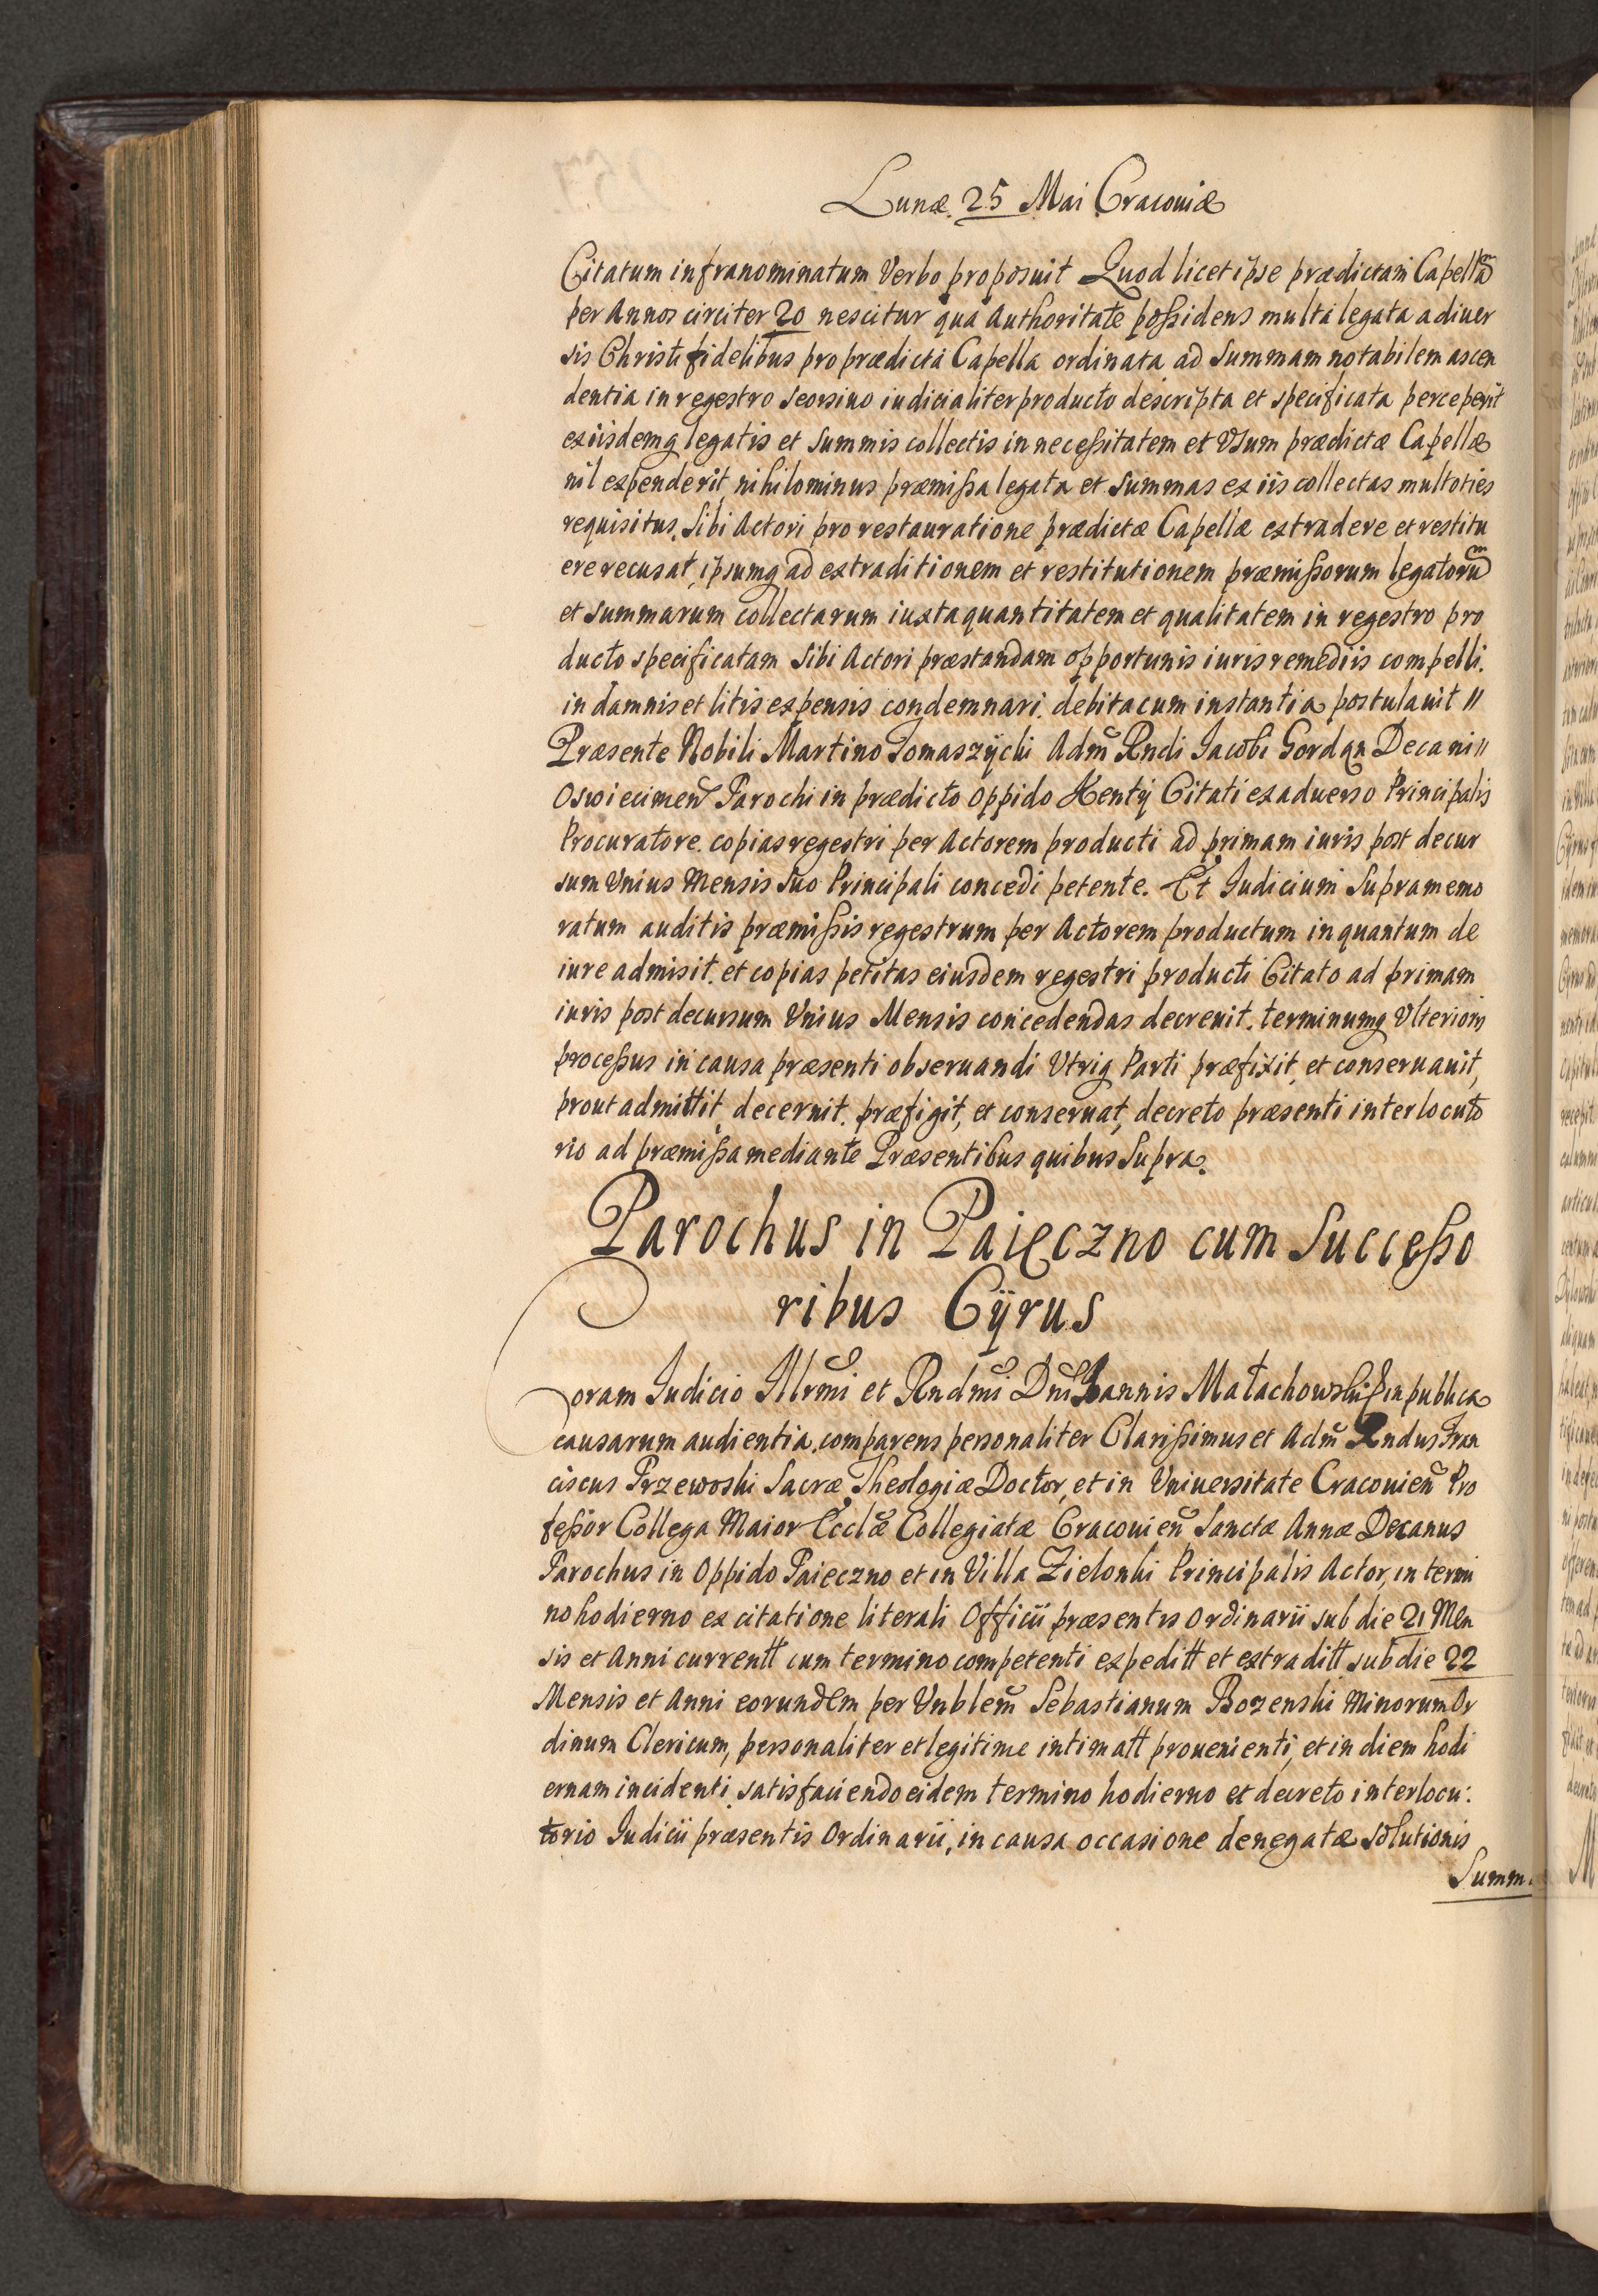 Lunæ. 25 Mai Cracouiæ
Citatum infranominatum Verbo proposuit Quod licet ipse prædictam Capellam
per Annos circiter 20 nescitur qua Authoritate poßidens multa legata a diuer
sis Christi fidelibus pro prædicta Capella ordinata ad summam notabilem ascen
dentia in regestro seorsiuo iudicialiter producto descripta et specificata perceperit
ex iisdemq legatis et summis collectis in neceßitatem et Vsum prædictæ Capellæ
nil expenderit, nihilominus præmißa legata et summas ex iis collectas multoties
requisitus. sibi Actori pro restauratione prædictæ Capellæ extradere et restitu
ere recusat, ipsumq ad extraditionem et restitutionem præmißorum legatorum
et summarum collectarum iuxta quantitatem et qualitatem in regestro pro
ducto specificatam sibi Actori præstandam opportunis iuris remediis compelli.
in damnis et litis expensis condemnari. debita cum instantia postulauit //
Præsente Nobili Martino Tomaszÿcki Adm̃ Rndi Jacobi Gordan Decani //
Oswiecimeñ Parochi in prædicto Oppido Kentÿ Citati ex aduerso Principalis
Procuratore. copias regestri per Actorem producti ad primam iuris post decur
sum Vnius Mensis suo Principali concedi petente. Et Judicium supramemo
ratum auditis præmißis regestrum per Actorem productum inquantum de
iure admisit. et copias petitas eiusdem regestri producti Citato ad primam
iuris post decursum Vnius Mensis concedendas decreuit. terminumq Vlterioris
proceßus in causa præsenti obseruandi Vtriq Parti præfixit, et conseruauit,
prout admittit, decernit. præfigit, et conseruat, decreto præsenti interlocuto
rio ad præmißa mediante Præsentibus quibus supra.
Parochus in Paięczno cum Succeßo
ribus Cÿrus
Coram Judicio Illrmi et Rndmi Dni Joannis Małachowski in publica
causarum audientia. comparens personaliter Clarißimus et Adm̃ Rndus Fran
ciscus Przewoski Sacræ Theologiæ Doctor, et in Vniuersitate Cracouieñ Pro
feßor Collega Maior Ecclæ Collegiatæ Cracouieñ Sanctæ Annæ Decanus
Parochus in Oppido Paieczno et in Villa Zielonki Principalis Actor, in termi
no hodierno ex citatione literali Officii præsentis Ordinarii sub die 21 Men
sis et Anni currentt cum termino competenti expeditt et extraditt sub die 22
Mensis et Anni eorundem per Vnblem Sebastianum Bozenski Minorum Or
dinum Clericum, personaliter et legitime intimatt prouenienti, et in diem hodi
ernam incidenti. satisfaciendo eidem termino hodierno et decreto interlocu:
torio Judicii præsentis Ordinarii, in causa occasione denegatæ solutionis